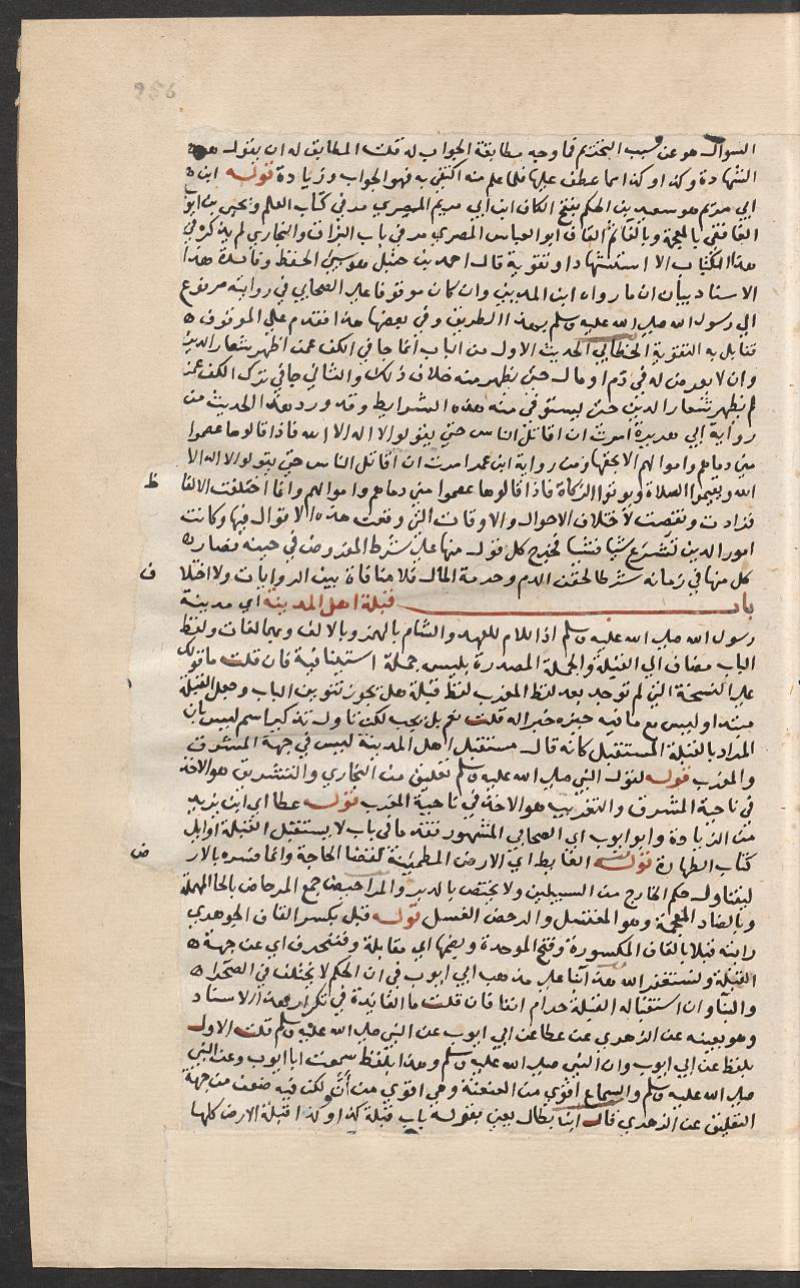 256
السوال هو عن سبب التحريم فما وجه مطابقة الجواب له قلت المطابق له ان يقول هذه
الشهادة وكذا وكذا اسما عطف عليها فلما علم منه اكتفي به فهو الجواب وزيادة قوله ابن
ابي مريم هو سعيد بن الحكم بفتح الكاف ابن ابي مريم المصري مر في كتاب العلم ويحيى بن ايوب
الغافقي بالمعجمة وبالفا ثم القاف ابو العباس المصري مر في باب البزاق والبخاري لم يذكره في
هذا الكتاب الا استشهادا وتقوية قال احمد بن حنبل هو سيئ الحفظ وفائدة هذا
الاسناد بيان ان ما رواه ابن المديني وان كان موقوفا على الصحابي في روايته مرفوع
الي رسول الله صلى الله عليه وسلم بهذا الطريق وفي بعضها هذا مقدم على الموقوف
قابل به التقوية الخطابي الحديث الاول من الباب انما جا في الكف عمن اظهر شعار الدين
وان لا يعرض له في دم او مال حتى يظهر منه خلاف ذلك والثاني جا في ترك الكف عمن
لم يظهر شعار الدين حتى يستوفي منه هذه الشرايط وقد ورد هذا الحديث من
رواية ابي هريرة امرت ان اقاتل الناس حتى يقولوا لا اله الا الله فاذا قالوها عصموا
مني دماهم واموالهم الا بحقها ومن رواية ابن عمر امرت ان اقاتل الناس حتى يقولوا لا اله الا
الله ويقيموا الصلاة ويوتوا الزكاة فاذا قالوها عصموا مني دماهم واموالهم وانما اختلفت الالفا ظ
فزادت ونقصت لاختلاف الاحوال والاوقات التي وقعت هذه الاقوال فيها وكانت
امور الدين تشرع شيا فشيا فخرج كل قول منها على شرط المفروض في حينه فصار
كل منها في زمانه شرطا لحقن الدم وحرمة المال فلا منافاة بين الروايات ولا اختلا ف
باب قبلة اهل المدينة اي مدينة
رسول الله صلى الله عليه وسلم اذ اللام للعهد والشام بالهمز وبالالف وبها لغات ولفظ
الباب مضاف الي القبلة والجملة المصدرة بليس جملة استينافية فان قلت ما تولك
على النسخة التي لم توجد بعد لفظ المغرب لفظ قبلة هل يجوز تنوين الباب وجعل القبلة
مبتدا وليس مع ما فيه حيزه خبرا له قلت نعم بل يجب لكن تاول تذكير اسم ليس بان
المراد بالقبلة المستقبل كانه قال مستقبل اهل المدينة ليس في جهة المشرق
والمغرب قوله لقول النبي صلى الله عليه وسلم تعليق من البخاري والتشريق هو الاخذ
في ناحية المشرق والتغريب هو الاخذ في ناحية المغرب قوله عطا اي ابن يزيد
من الزيادة وابو ايوب اي الصحابي المشهور تقدما في باب لا يستقبل القبلة اوايل
كتاب الطهارة قوله الغايط اي الارض المطمئنة لقضا الحاجة وانما فسره بالار ض
ليتناول حكم الخارج من السبيلين ولا يختص بالدبر والمراحيض جمع المرحاض بالحا المهملة
وبالضاد المعجمة وهو المغتسل والرحض الغسل قوله قبل بكسر القاف الجوهري
رايته قبلا بالقاف المكسورة وفتح الموحدة وبضمها اي مقابلة وفننحرف اي عن جهة
القبلة ونستغفر الله هذا بناء على مذهب ابي ايوب في ان الحكم لا يختلف في الصحرا
والبنا وان استقباله القبلة حرام اتفا فان قلت ما الفايدة في تكرار هذا الاسناد
وهو بعينه عن الزهري عن عطا عن ابي ايوب عن النبي صلى الله عليه وسلم قلت الاول
بلفظ عن ابي ايوب وان النبي صلى الله عليه وسلم وهذا بلفظ سمعت ابا ايوب وعن النبي
صلى الله عليه وسلم والسماع اقوي من العنعنة وهي اقوي من أنّ لكن فيه ضعف من جهة
التعليق عن الزهري قال ابن بطال يعني بقوله باب قبلة كذا وكذا قبلة الارض كلها